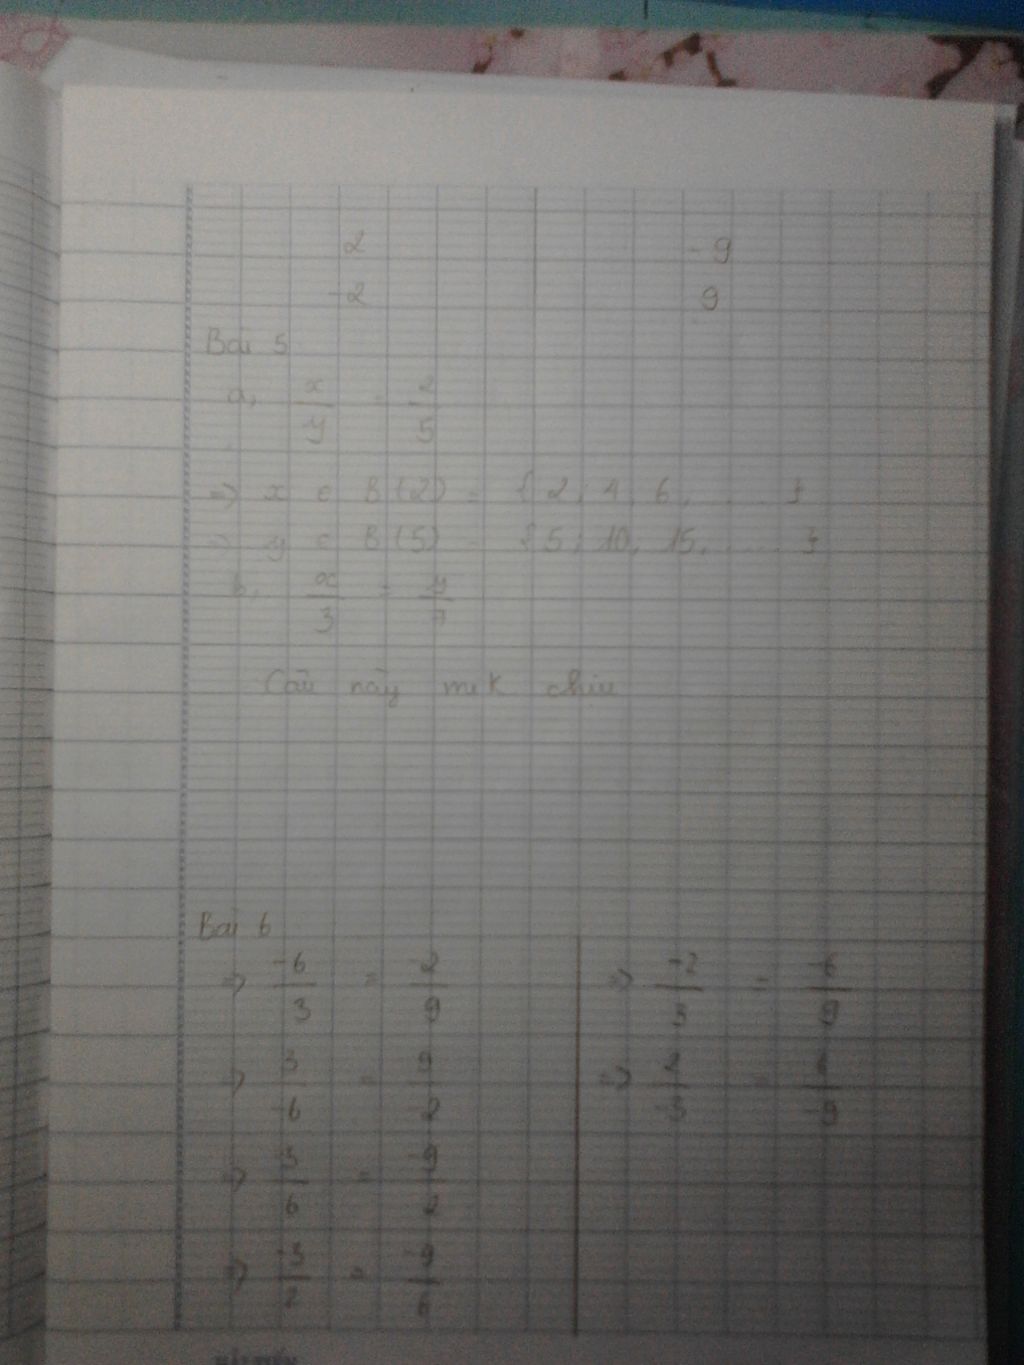 2 -9
-2 9
Bài 5
a, x/y = 2/5
=> x ∈ B(2) = { 2; 4, 6, .... }
=> y ∈ B(5) = { 5; 10, 15, .... }
b, x/3 = y/7
Câu này mik chịu
Bài 6
=> -6/3 = -2/9 => -2/3 = -6/9
=> 3/-6 = 9/-2 => 2/-3 = 6/-9
=> -3/6 = -9/2
=> -3/2 = -9/6